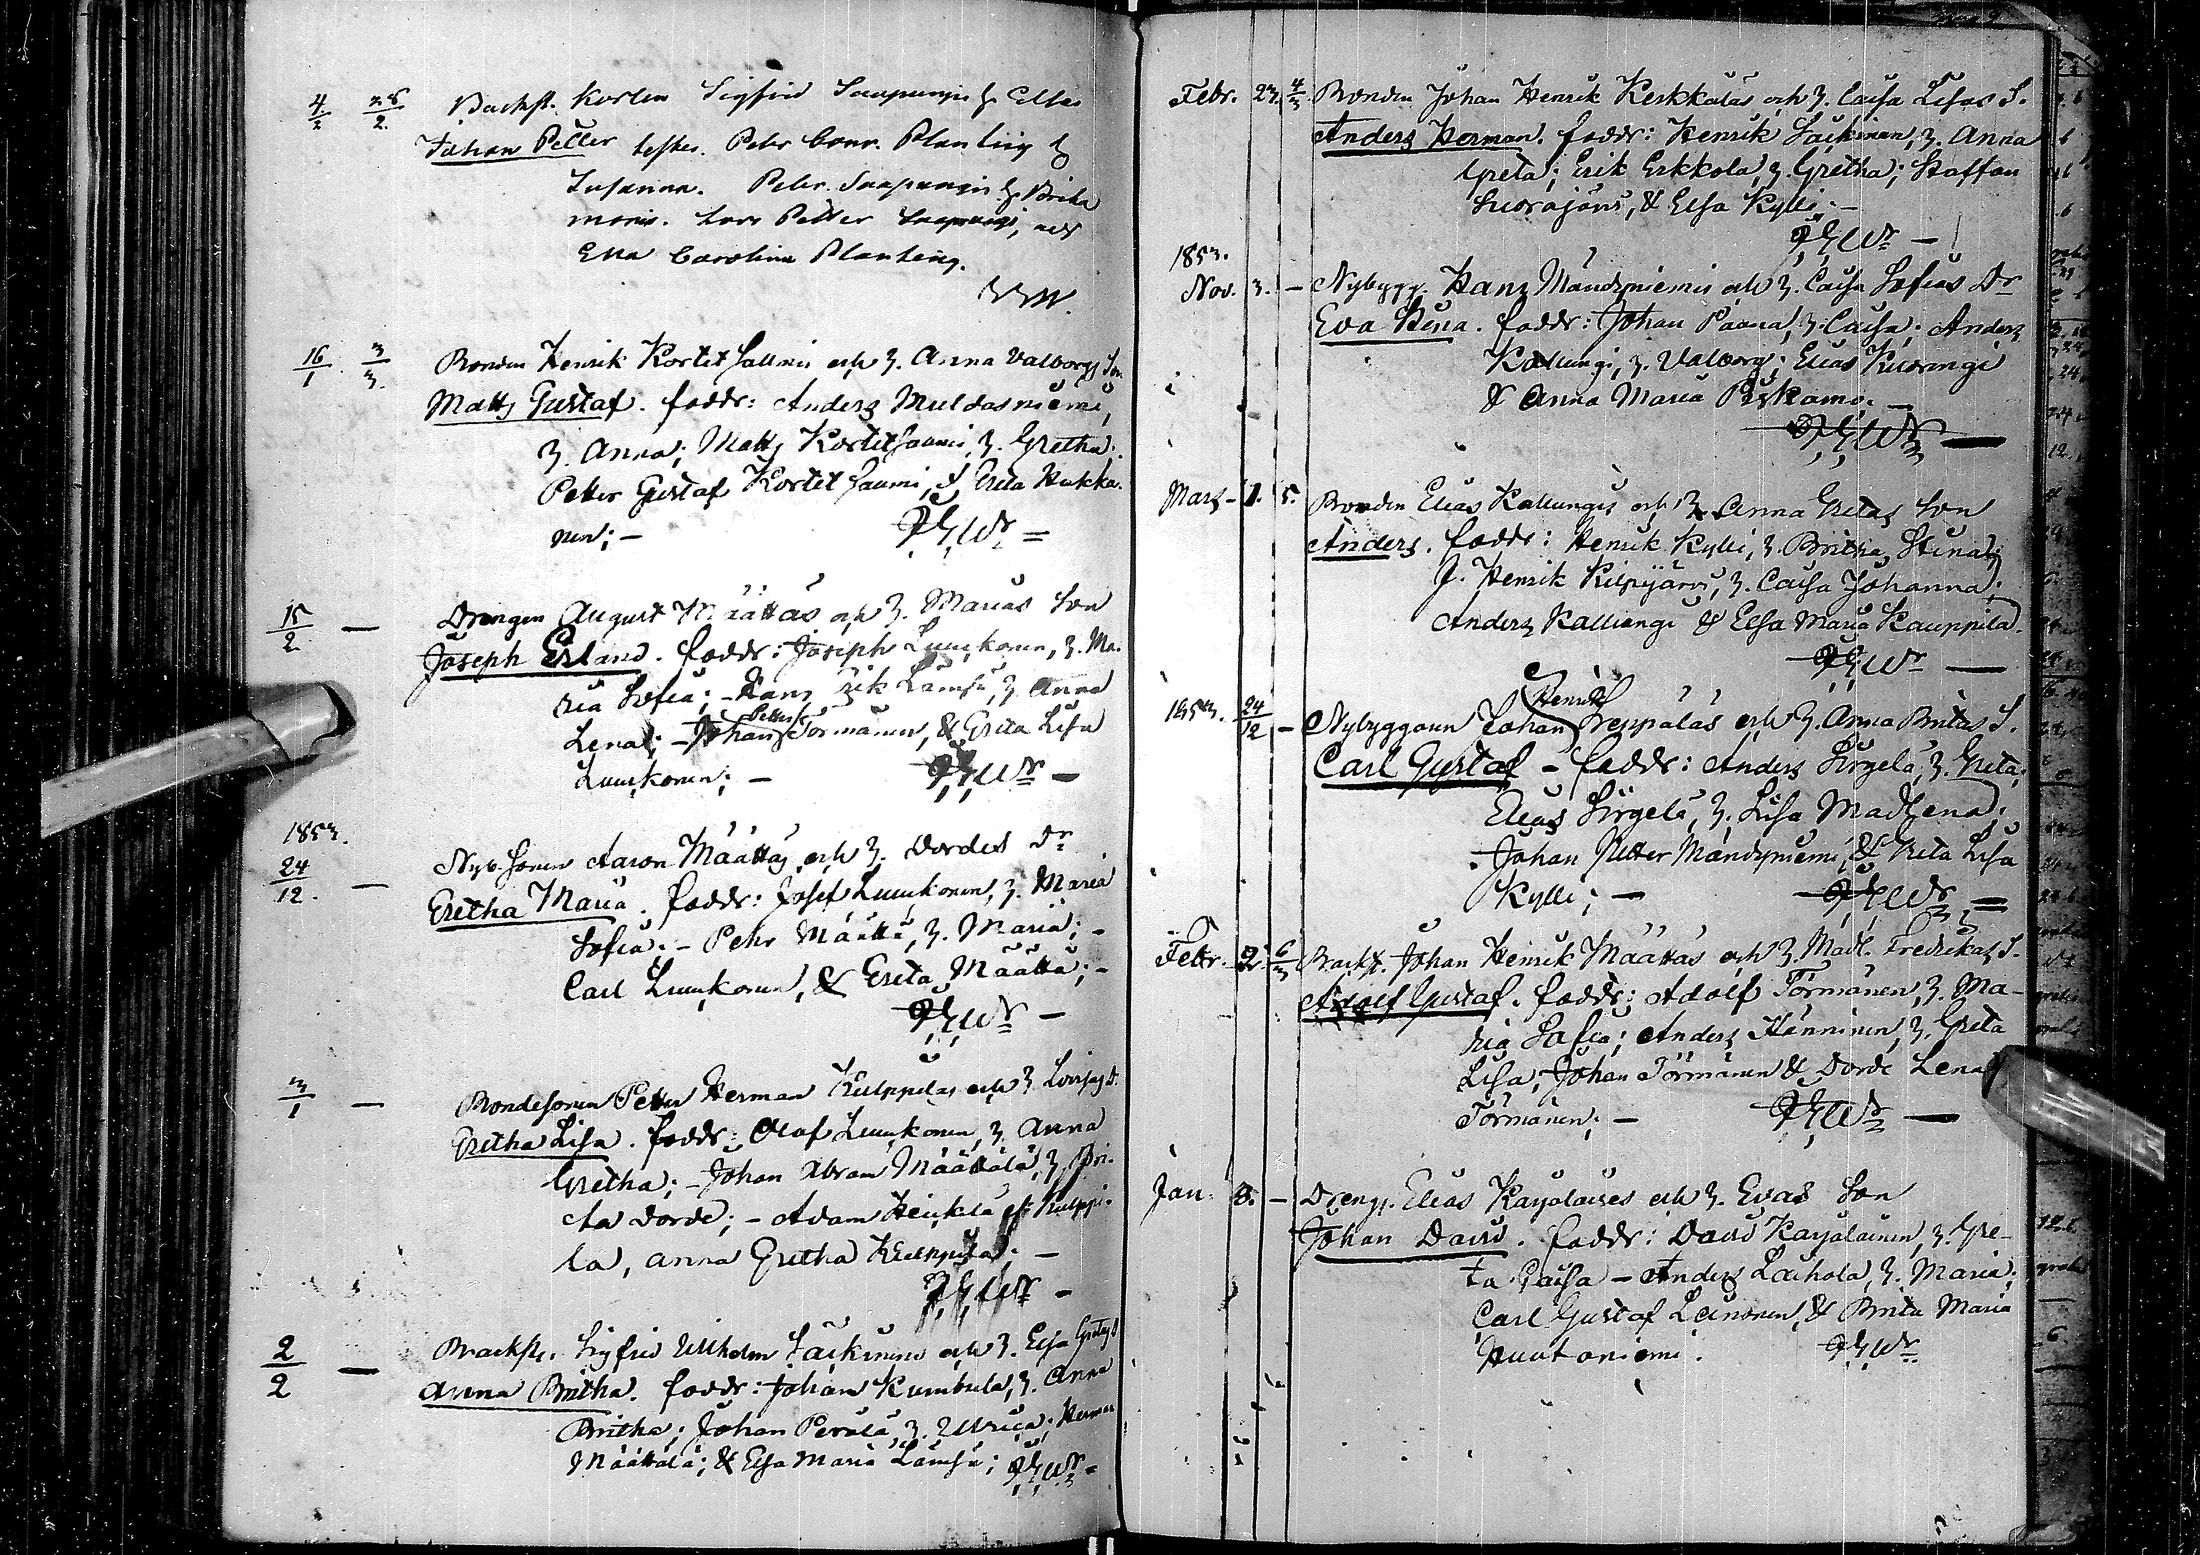 4/2 28/2. Backst. Karlen Sigfrid Saapungis & Elsas
Johan Petter testes. Petr Conr. Planting &
Susanna. Petr Saapungis & Brita
Maria. Lars Petter Saapungi, och
Eva Carolina Planting.
16/1 3/3. Bonden Henrik Kortetsalmis och h. Anna Valborgs Son
Matts Gustaf. faddr: Anders Muldasniemi,
h. Anna; Matts Kortetsaumi, h. Gretha;
Petter Gustaf Kortetsaumi, & Greta Hukka-
nen; –
15/2 — Drengen August Määttäs och h. Marias Son
Joseph Erland. faddr: Joseph Luukkonen, h. Ma-
ria Sofia; – Hans Erik Lämsä, h. Anna
Lena; – Johan Petter Törmänen, & Greta Lisa
Luukkonen; –
1853.
24/12. — Nyb. Sonen Aaron Määttäs och h. Dordes Dr
Gretha Maria. faddr: Josef Luukkonen, h. Maria
Sofia; – Pehr Määttä, h. Maria; –
Carl Luukkonen, & Greta Määttä; –
3/1 — Bondesonen Petter Herman Kulppilas och h. Lovisas D.
Gretha Lisa. faddr: Olof Luukkonen, h. Anna
Gretha; – Johan Abram Määttälä, h. Bri-
ta Dorde; – Adam Heikklä el. Kulppi-
la, Anna Gretha Kulppila. –
2/2 — Backst. Sigfrid Wilhelm Säkkinens och h. Elsa Gretas D
Anna Britha. faddr: Johan Kumbula, h. Anna
Britha; Johan Perälä, h. Ulrica; Herman
Määttälä; & Elsa Maria Lämsä;
Febr. 23. 4/3 Bonden Johan Henrik Kerkkolas och h. Caisa Lisas S.
Anders Herman. faddr: Henrik Säkkinen, h. Anna
Greta; Erik Erkkola, h. Gretha; Staffan
Suorajärvi, & Elsa Kylli. –
1853.
Nov. 3. – Nybygg. Hans Mändyniemis och h. Caisa Sofias Dr
Eva Stina. faddr: Johan Paana, h. Caisa; Anders
Kallungi, h. Valborg; Elias Kuorungi
& Anna Maria Piskamo. –
Mars – 1. 5. Bonden Elias Kallungis och h. Anna Gretas Son
Anders. faddr: Henrik Kylli, h. Britha Stina;
J. Henrik Kilpijärvi, h. Caisa Johanna;
Anders Kallungi & Elsa Maria Kauppila.
1853. 24/12 – Nybyggaren Johan Henrik Seppälas och h. Anna Britas S.
Carl Gustaf – faddr: Anders Sirgelä, h. Greta;
Elias Sirgelä, h. Lisa Madlena;
Johan Petter Mändyniemi, & Greta Lisa
Kylli; –
Febr. 2. 6/3 Backst. Johan Henrik Määttäs och h. Madl. Fredrikas S.
Adolf Gustaf. faddr: Adolf Törmänen, h. Ma-
ria Sofia; Anders Hänninen, h. Greta
Lisa, Johan Törmänen & Dorde Lena
Törmänen; –
Jan. 8. – Drengs. Elias Karjalaises och h. Evas Son
Johan David. faddr: David Karjalainen, h. Gre-
ta Caisa – Anders Laihola, h. Maria;
Carl Gustaf Leinonen, & Brita Maria
Huutoniemi.